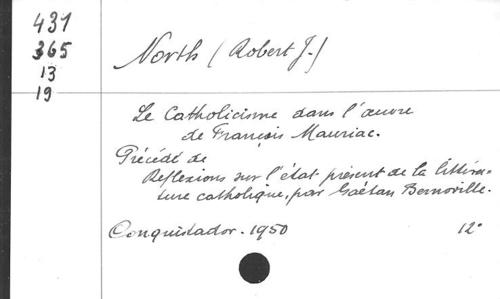 431
365
13
19
North (Robert J.)
Le Catholicisme dans l'œuvre
de François Mauriac.
Précédé de
Réflexions sur l'état présent de la littéra-
ture catholique, par Gaëtan Bernoville.
Conquistador. 1950 12°